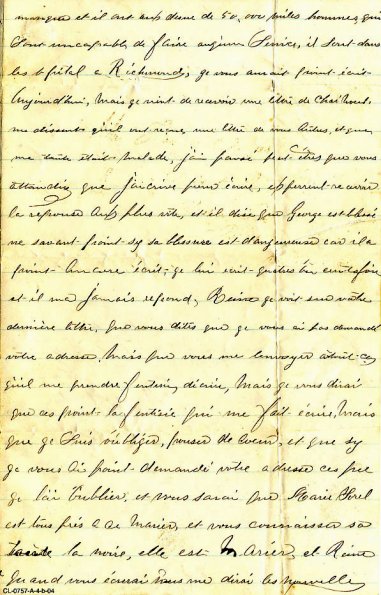 manque et il ont au dessue de 50,000 miles hommes, qui
Sont uncapable de faire aujun Service, il Sont dans
les hôpital a Richmond, ge vous aurait point écrit
Aujourd'hui, Mais ge vient de recevoir une lettre de Charles,
me dissent quil ont reçue une lettre de vous Autres, et que
ma tante était Malade, j'ai pansé peut êtres que vous
attandiez que j'aicrive
la réponse aux plus vite, et il dise que George est blessé
ne savant point sy sa blessure est dangereuse car il a
point Ancore écrit; ge lui écrit
et il ma jamais repond, Reine ge voit sur votre
dernière lettre, que vous dites que ge vous ai pas demandé
votre adresse, Mais que vous me l'envoyer
quil me prendre fantasie, décrire, Mais ge vous dirai
que ces point la fantisie qui me fait écrire, Mais
que ge Suis oubliger, pouser de coeur, et que sy
ge vous ai point demandé votre adresse ces que
ge l'ai Oublier, et vous sarai que Marie Sorel
est tous près a ce Marier, et vous connaisser sa
la noire, elle est Marier, et Reine
Quand vous écrirai vous me dirai les nouvelle
CL-0757-A-4-b-04